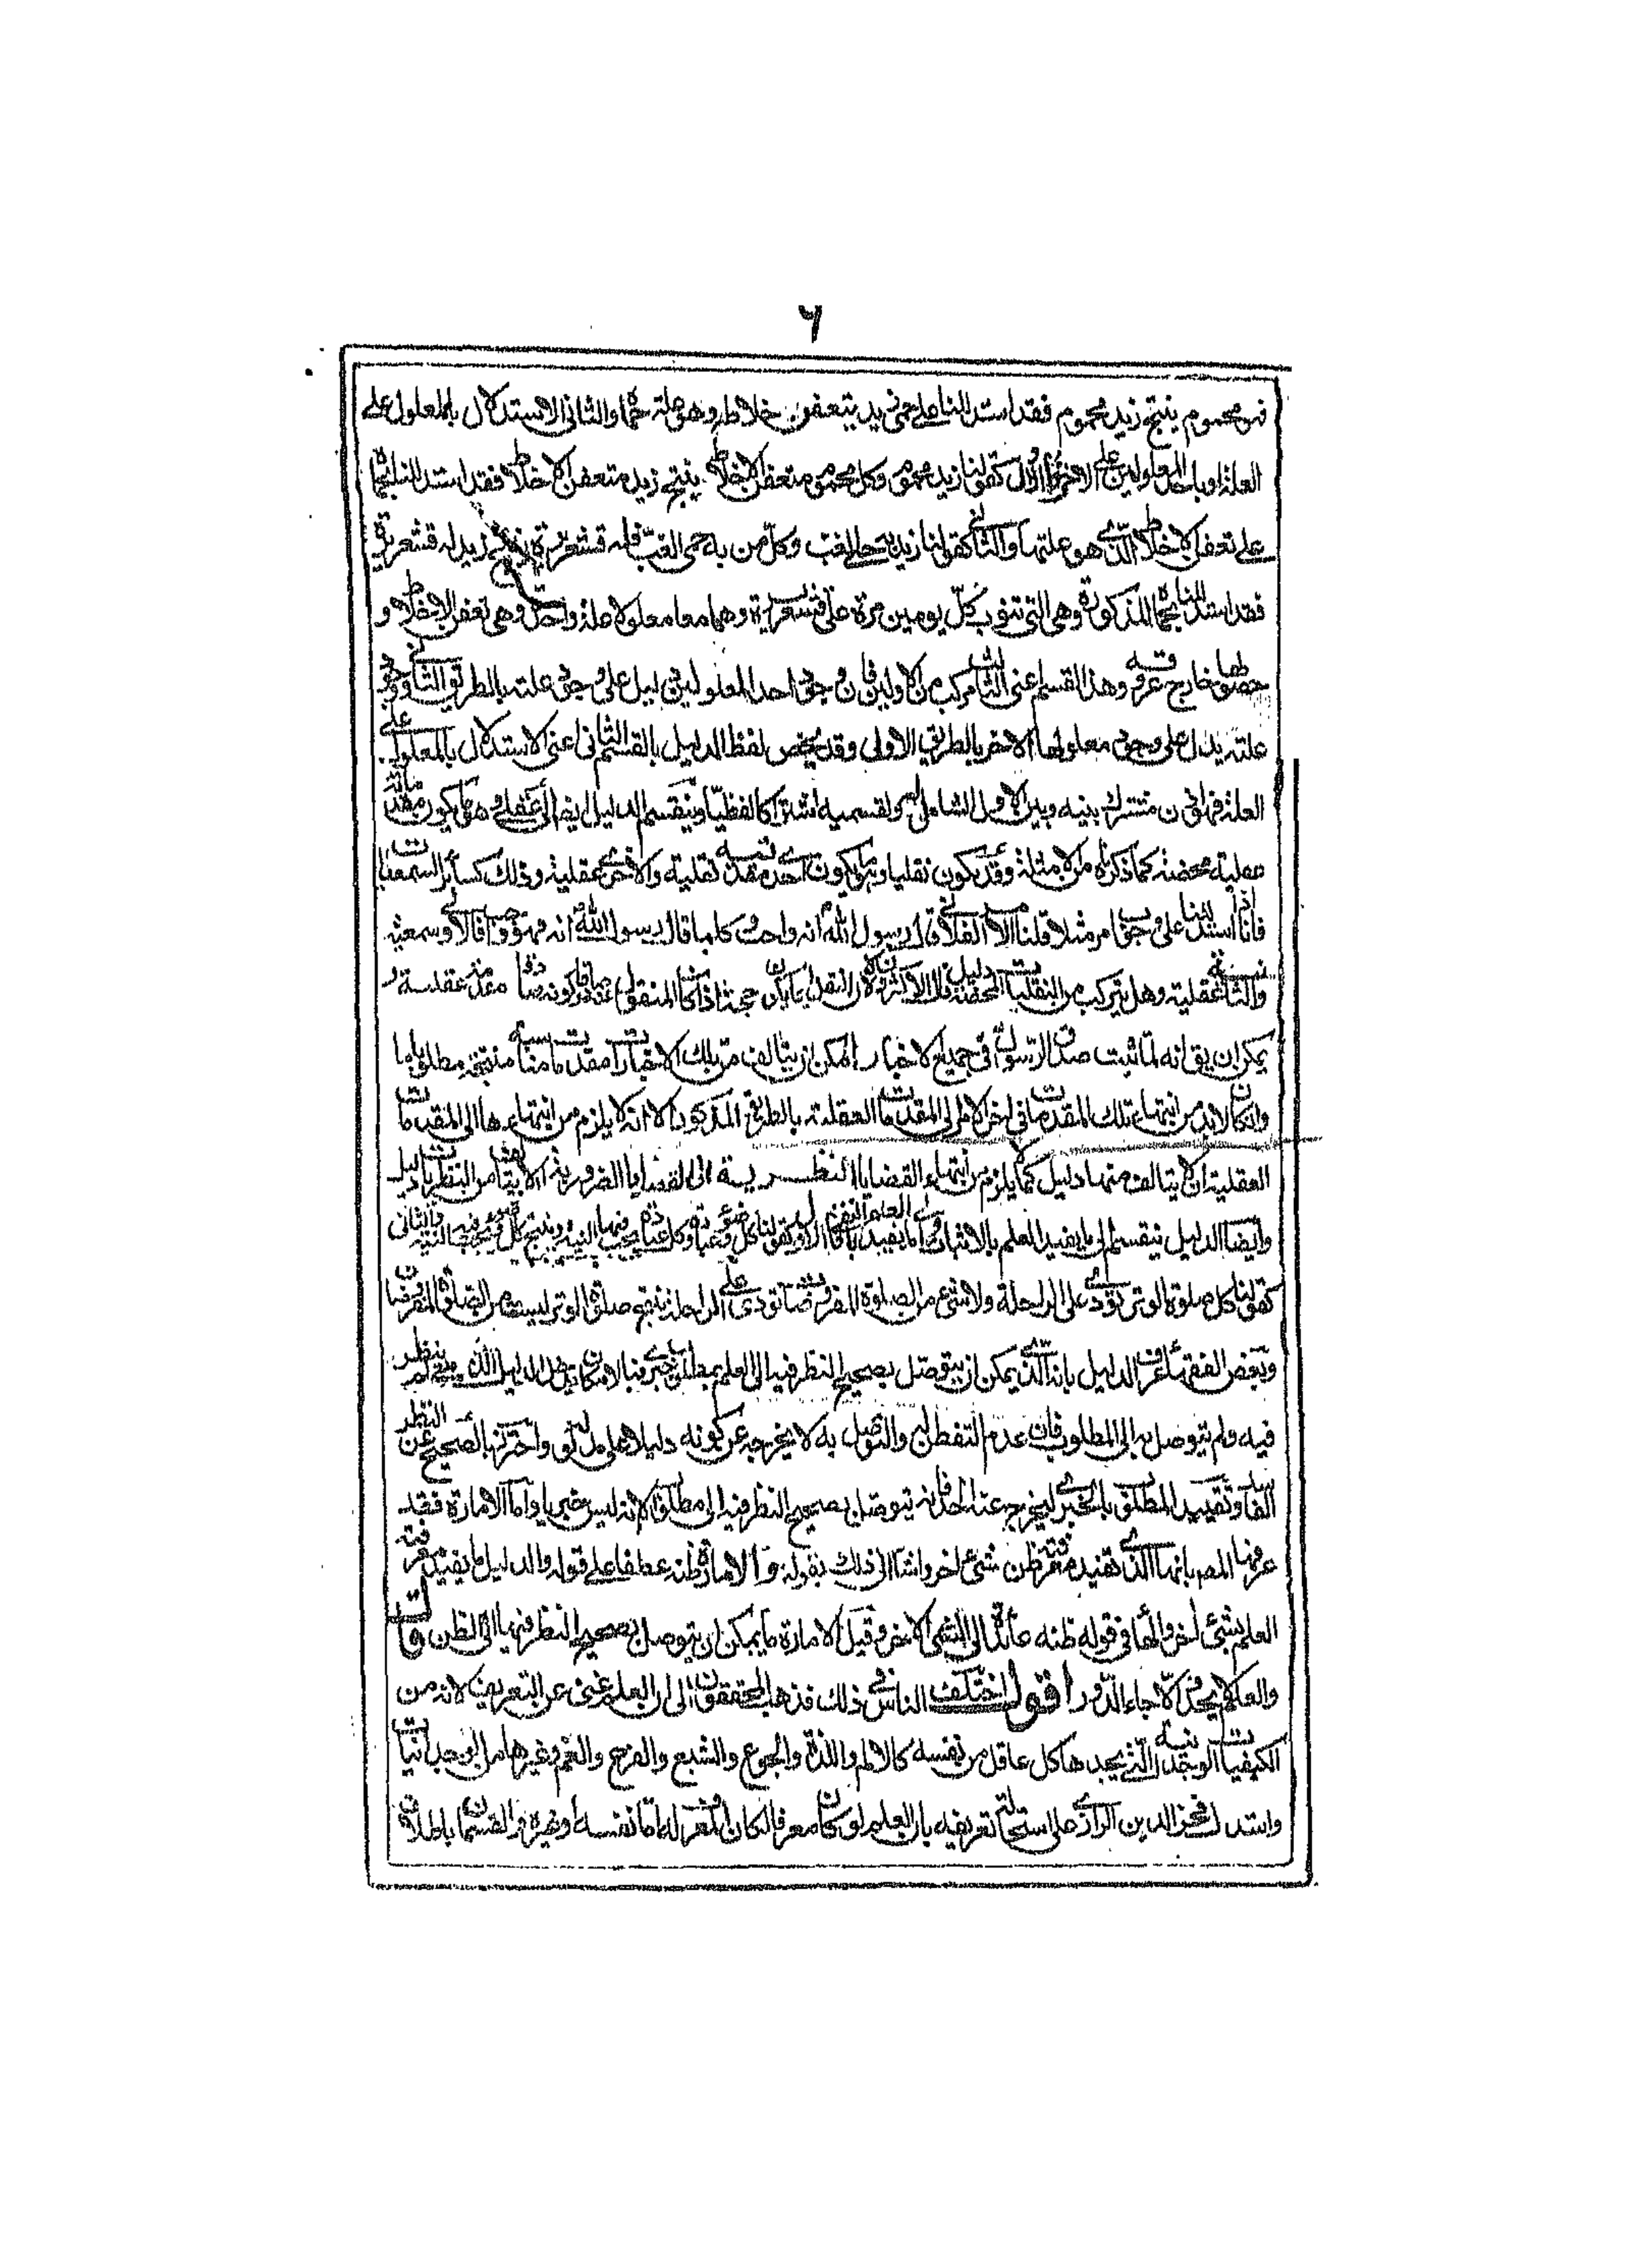 ٦
فهو محموم ينتج زيد محموم فقد استدللنا على حمى زيد بتعفن خلاطه وهو علة حماه والثانى الاستدلال بالمعلول على
العلة او باحد المعلولين على الاخر الاول كقولنا زيد محموم وكل محموم متعفن الاخلاط ينتج زيد متعفن الاخلاط فقد استدللنا بحماه
على تعفن الاخلاط الذى هو علتها والثانى كقولنا زيد به حمى الغب وكل من به حمى الغب فله قشعريرة ينتج زيد له قشعريرة
فقد استدللنا بحماه المذكورة وهى التى تنوب كل يومين مرة على قشعريرة وهما معا معلولا علة واحدة وهى تعفن الاخلاط و
خارج عروقه وهذا القسم اعنى الثالث مركب من الاولين فان وجود احد المعلولين دليل على وجود علته بالطريق الثانى ووجود
علته يدل على وجود معلولها الاخر بالطريق الاولى وقد يخص لفظ الدليل بالقسم الثانى اعنى الاستدلال بالمعلول على
العلة فهو اذن مشترك بينه وبين الاول الشامل له ولقسميه اشتراكا لفظيا وينقسم الدليل ايضا الى عقلى وهو ما يكون مقدماته
عقلية محضة كما ذكرناه من الامثلة وقد يكون نقليا وهو ما يكون احدى مقدمتيه نقلية والاخرى عقلية وذلك كسائر السمعيات
فانا اذا استدللنا على وجوب امر مثلا قلنا الامر الفلانى قال رسول الله انه واجب وكلما قال رسول الله انه واجب فهو واجب فالاولى سمعية
والثانية عقلية وهل يتركب من النقليات المحضة دليل قال الاكثرون لا لان النقل حجة اذا كان المنقول عنه صادقا وكونه صادقا مقدمة عقلية و
يمكن ان يق انه لما ثبت صدق الرسول فى جميع الاخبار امكن ان يتالف من تلك الاخبار مقدمات مناسبة منتجة مطلوبا ما
وان كان لابد من انتهاء تلك المقدمات فى اخر الامر الى المقدمات العقلية بالطريق المذكور الا انه لا يلزم من انتهاءها الى المقدمات
العقلية ان لا يتالف منها دليل كما لا يلزم من انتهاء القضايا النظرية الى القضايا الضرورية ان لا يتالف من النظريات دليل
وايضا الدليل ينقسم الى ما يفيد العلم بالاثبات والى ما يفيد العلم بالنفى فالاول كقولنا كل وضوء عبادة وكل عبادة يجب فيها النية ينتج كل وضوء يجب فيه النية والثانى
كقولنا كل صلوة الوتر تؤدى على الراحلة ولا شىء من الصلوة المفروضات تؤدى على الراحلة ينتج صلوة الوتر ليست من الصلوة المفروضات
وبعض الفقهاء عرف الدليل بانه الذى يمكن ان يتوصل بصحيح النظر فيه الى العلم بمطلوب خبرى فبالامكان يدخل الدليل الذى لم ينظر
فيه ولم يتوصل به الى المطلوب فان عدم التفطن له والتوصل به لا يخرجه عن كونه دليلا على مدلوله واحترز بالصحيح عن النظر
الفاسد وتقييد المطلوب بالخبرى ليخرج عنه الحد فانه يتوصل بصحيح النظر فيه الى مطلوب الا انه ليس خبريا واما الامارة فقد
عرفها المص بانها الذى تفيد معرفته ظن شىء اخر واشار الى ذلك بقوله والامارة ظنه عطفا على قوله والدليل ما يفيد معرفته
العلم بشىء اخر والهاء فى قوله ظنه عائدة الى الشىء الاخر وقيل الامارة ما يمكن ان يتوصل بصحيح النظر فيها الى الظن قال
والعلم لا يحد والا جاء الدور اقول اختلف الناس فى ذلك فذهب المحققون الى ان العلم غنى عن التعريف لانه من
الكيفيات الوجدانية التى يجدها كل عاقل من نفسه كالالم واللذة والجوع والشبع والفرح والغم وغيرها من الوجدانيات
واستدل فخر الدين الرازى على استحالة تعريفه بان العلم لو كان معرفا لكان المعرف له اما نفسه او غيره والقسمان باطلان